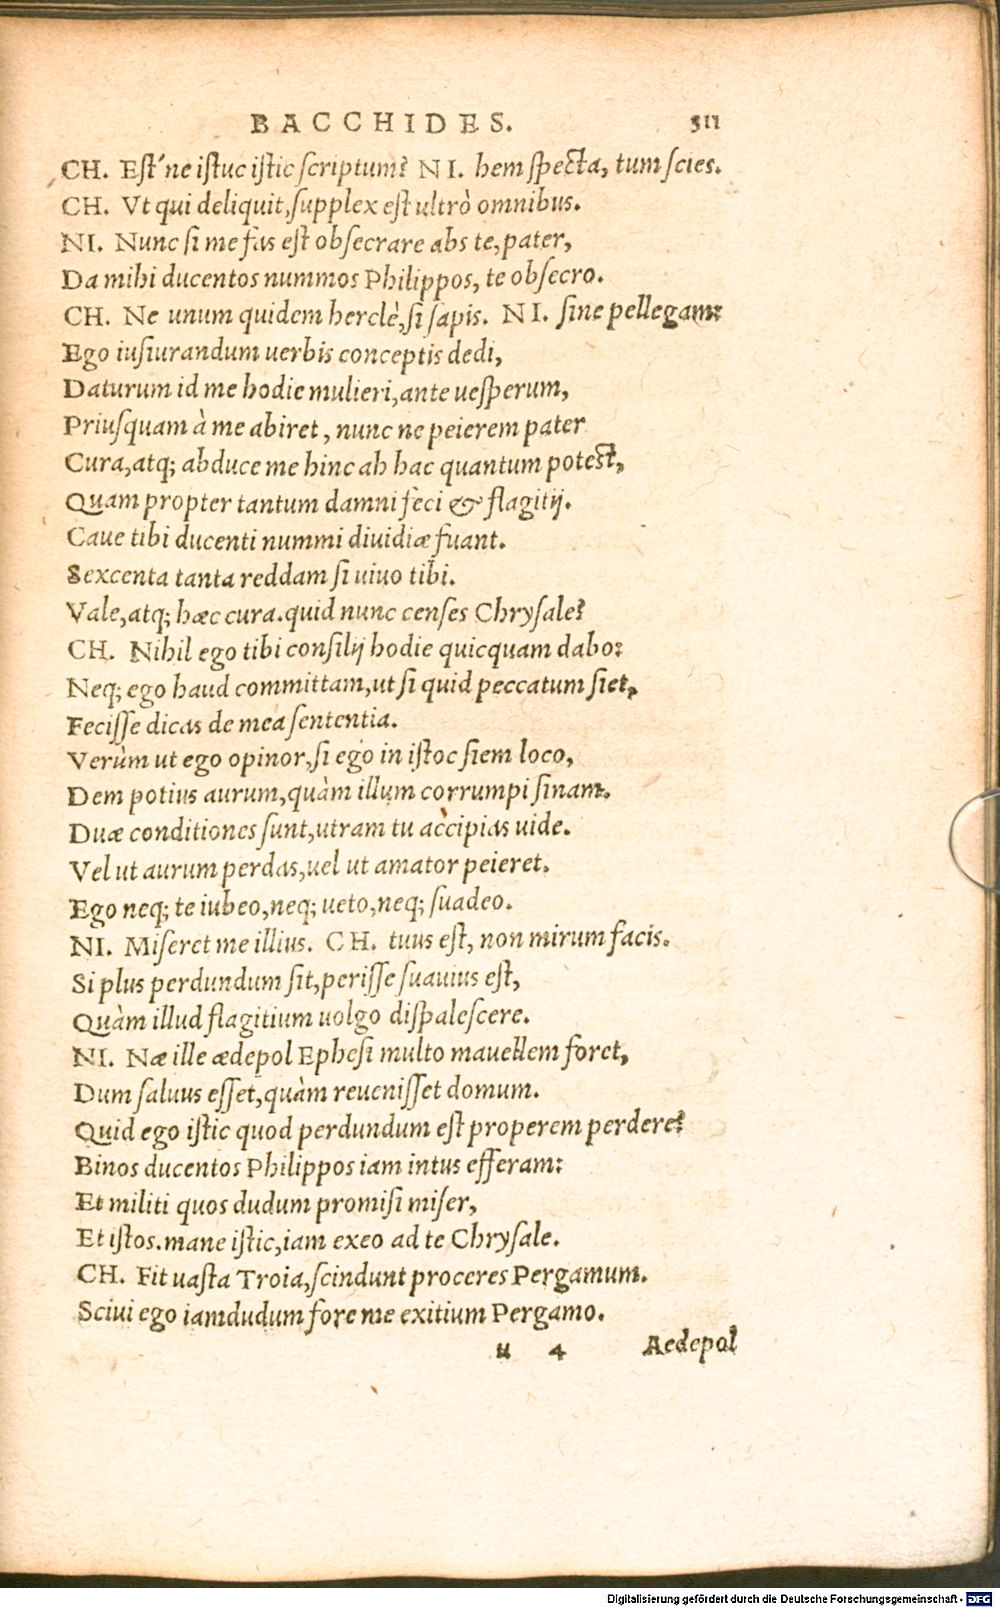 BACCHIDES. 311
CH. Est'ne istuc istic scriptum? NI. hem specta, tum scies.
CH. Vt qui deliquit, supplex est ultrò omnibus.
NI. Nunc si me fas est obsecrare abs te, pater,
Da mihi ducentos nummos Philippos, te obsecro.
CH. Ne unum quidem herclè, si sapis. NI. sine pellegam:
Ego iusiurandum uerbis conceptis dedi,
Daturum id me hodie mulieri, ante uesperum,
Priusquam à me abiret, nunc ne peierem pater
Cura, atq; abduce me hinc ab hac quantum potest,
Quam propter tantum damni feci & flagitij.
Caue tibi ducenti nummi diuidiæ fuant.
Sexcenta tanta reddam si uiuo tibi.
Vale, atq; hæc cura. quid nunc censes Chrysale?
CH. Nihil ego tibi consilij hodie quicquam dabo:
Neq; ego haud committam, ut si quid peccatum siet,
Fecisse dicas de mea sententia.
Verùm ut ego opinor, si ego in istoc siem loco,
Dem potius aurum, quàm illum corrumpi sinam.
Duæ conditiones sunt, utram tu accipias uide.
Vel ut aurum perdas, uel ut amator peieret.
Ego neq; te iubeo, neq; ueto, neq; suadeo.
NI. Miseret me illius. CH. tuus est, non mirum facis.
Si plus perdundum sit, perisse suauius est,
Quàm illud flagitium uolgo dispalescere.
NI. Næ ille ædepol Ephesi multo mauellem foret,
Dum saluus esset, quàm reuenisset domum.
Quid ego istic quod perdundum est properem perdere?
Binos ducentos Philippos iam intus efferam:
Et militi quos dudum promisi miser,
Et istos. mane istic, iam exeo ad te Chrysale.
CH. Fit uasta Troia, scindunt proceres Pergamum.
Sciui ego iamdudum fore me exitium Pergamo.
u 4 Aedepol
Digitalisierung gefördert durch die Deutsche Forschungsgemeinschaft - DFG